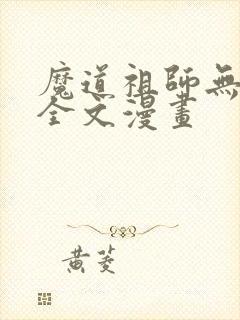 魔道祖師無
全文漫畫
黄菱